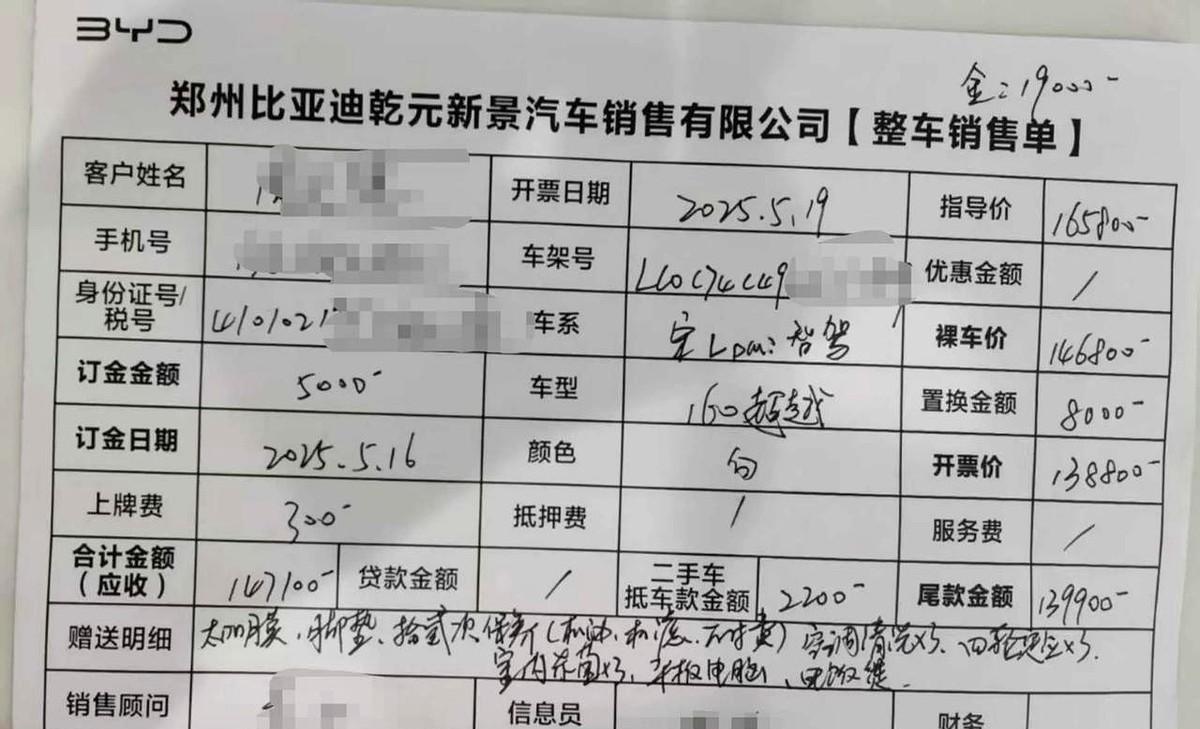 BYD
金：19000-
郑州比亚迪乾元新景汽车销售有限公司【整车销售单】
客户姓名 开票日期 2025.5.19 指导价 165800-
手机号 车架号 LC0C74C49 优惠金额 /
身份证号/税号 4101021 车系 宋L DM-i 智驾 裸车价 146800-
订金金额 5000- 车型 160超越 置换金额 8000-
订金日期 2025.5.16 颜色 白 开票价 138800-
上牌费 300- 抵押费 / 服务费 /
合计金额（应收） 147100- 贷款金额 / 二手车抵车款金额 2200- 尾款金额 139900-
赠送明细 太阳膜、脚垫、拾贰次保养（机油、机滤、工时费）空调清洗×3、四轮定位×3、
室内杀菌×3、平板电脑、电饭煲
销售顾问 信息员 财务